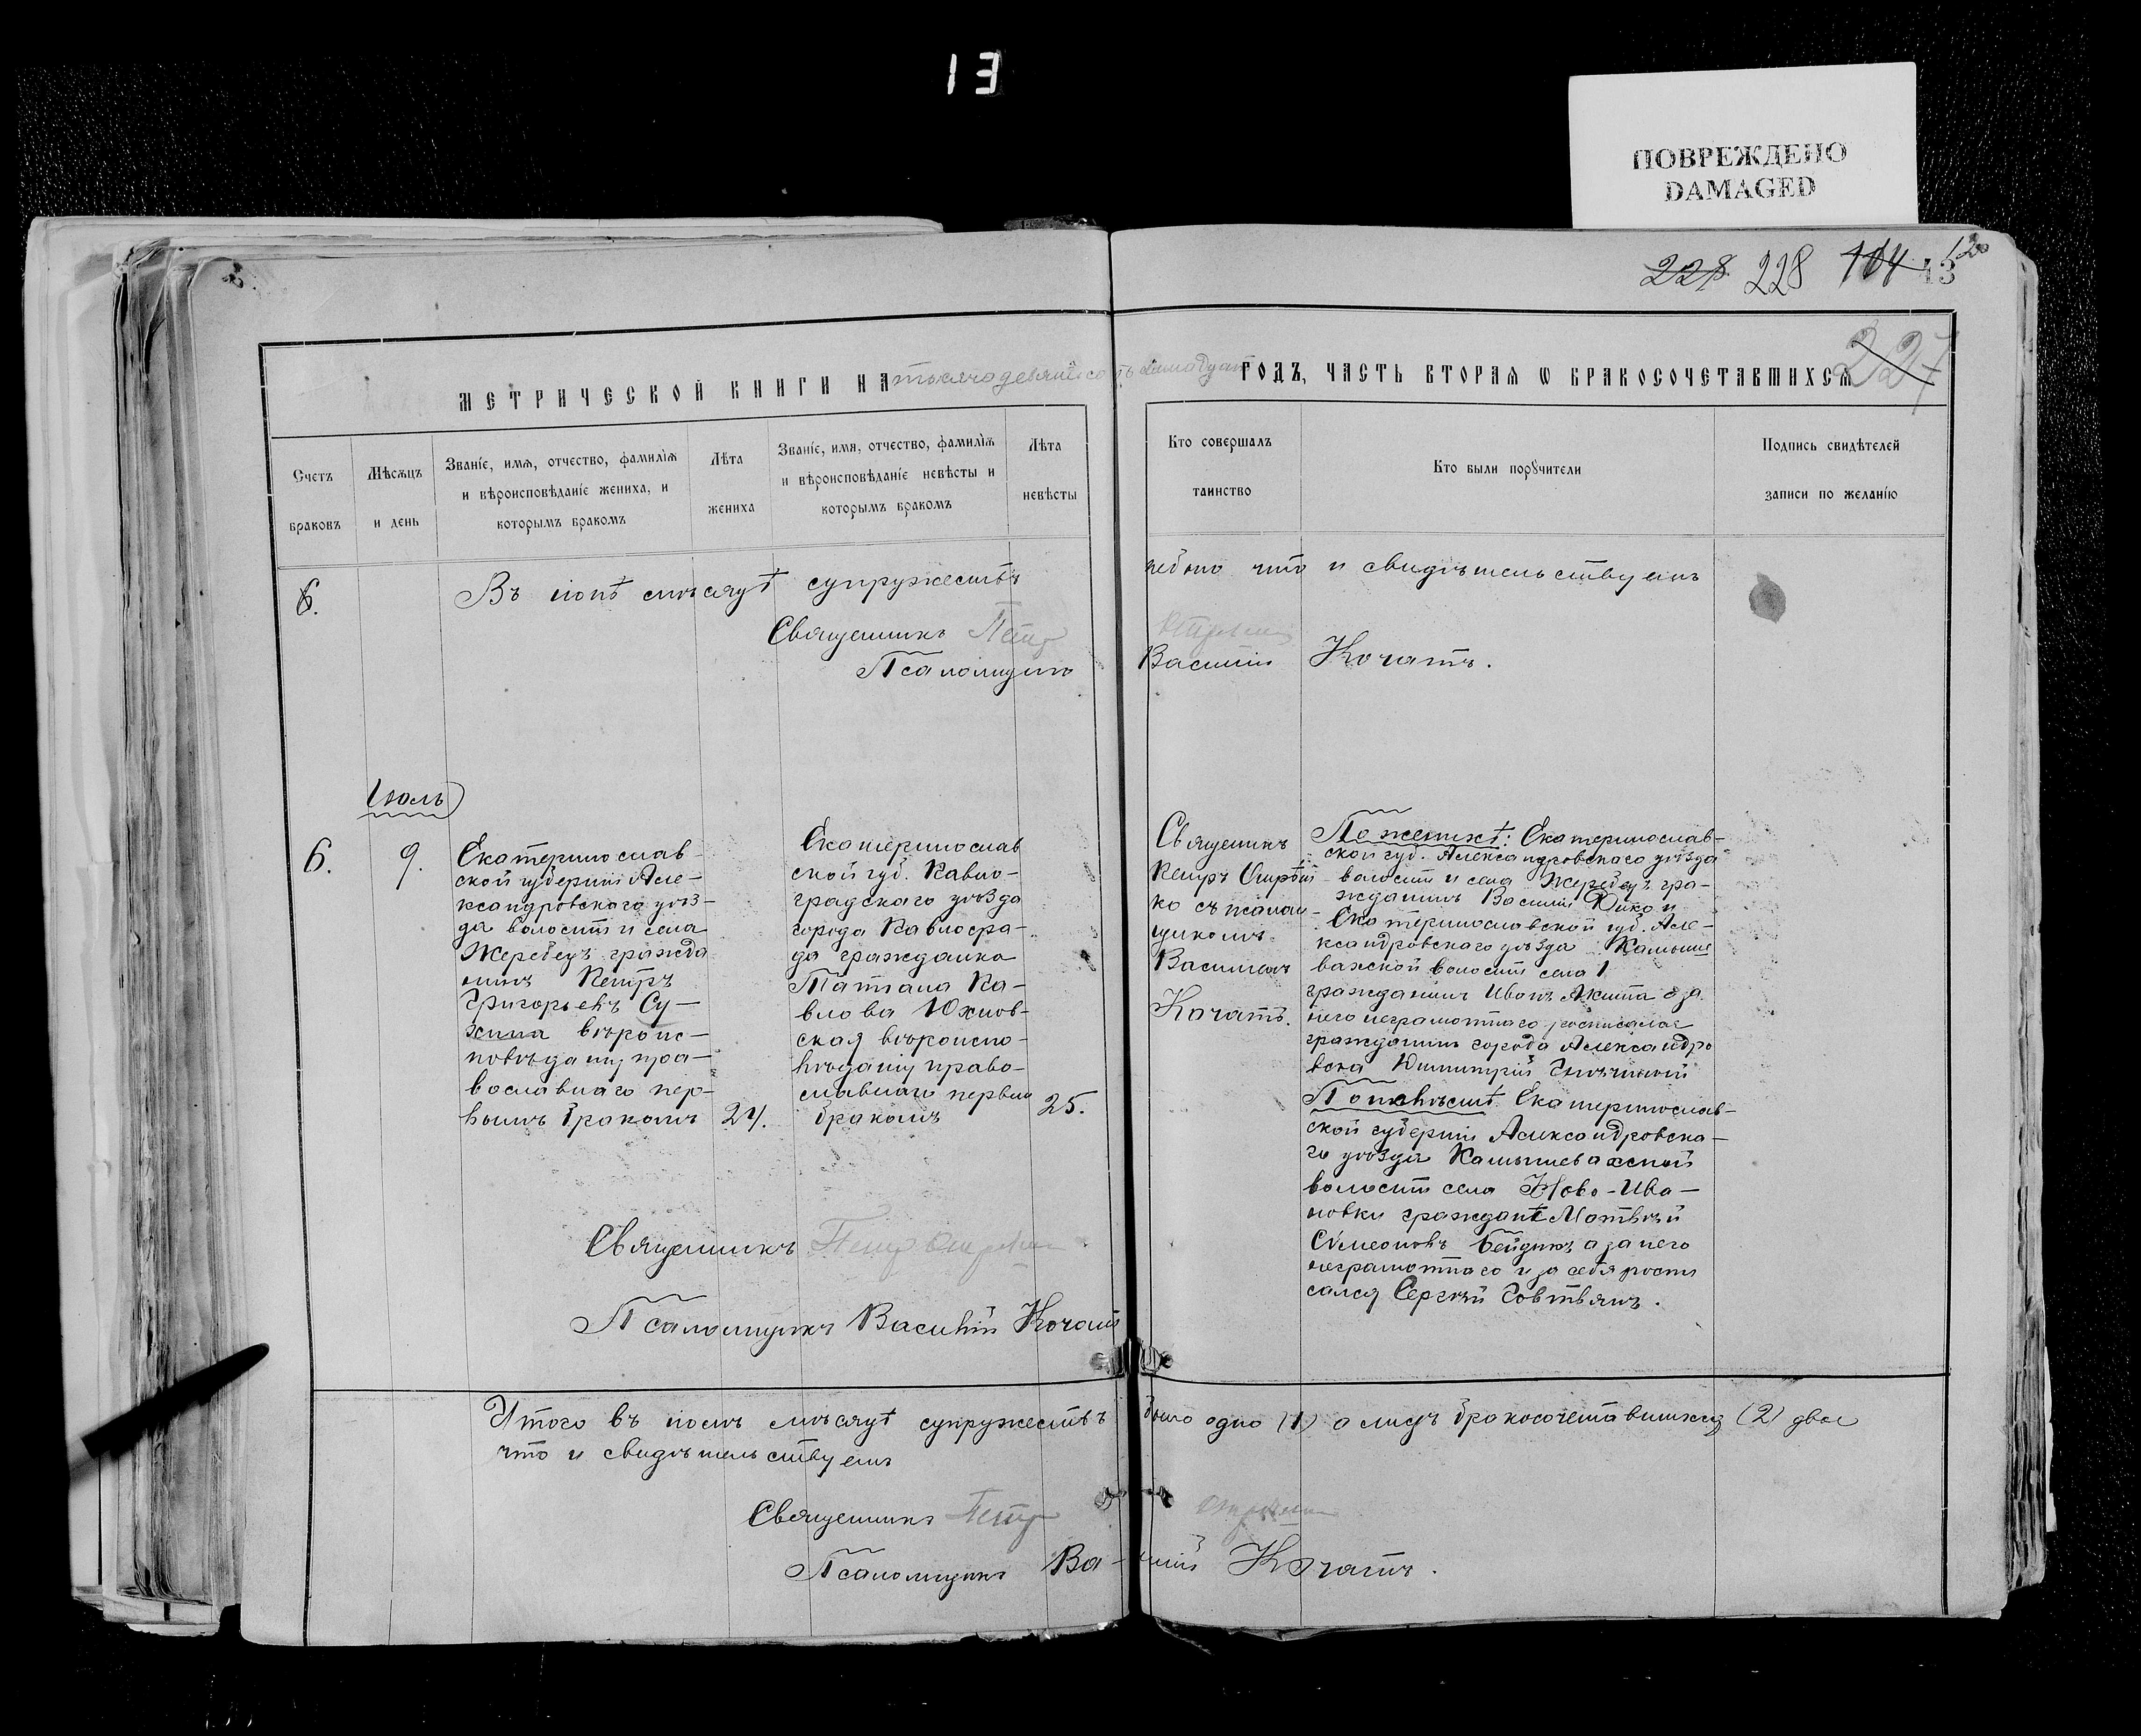 13
ПОВРЕЖДЕНО
DAMAGED
228 228 104 13 120
227
МЕТРИЧЕСКОЙ КНИГИ НА тысяча девятьсотъ ГОДЪ, ЧАСТЬ ВТОРАЯ Ѡ БРАКОСОЧЕТАВШИХСЯ
Счетъ
браковъ
Мѣсяцъ
и день
Званіе, имя, отчество, фамилія
и вѣроисповѣданіе жениха, и
которымъ бракомъ
Лѣта
жениха
Званіе, имя, отчество, фамилія
и вѣроисповѣданіе невѣсты и
которымъ бракомъ
Лѣта
невѣсты
Кто совершалъ
таинство
Кто были поручители
Подпись свидѣтелей
записи по желанію
6.
Въ мѣсяцѣ супружествъ
не было что и свидѣтельствуемъ
Священникъ Петр
Псаломщикъ
Василій Кочатъ.
Іюль
6.
9.
Екатеринослав-
ской губерніи Але-
ксандровскаго уѣз-
да волости и села
Жеребецъ гражда
нинъ Петръ
Григорьевъ Су-
хина вѣроис-
повѣданія пра-
вославнаго пер-
вымъ бракомъ
24.
Екатеринослав
ской губ. Павло-
градскаго уѣзда
города Павлогра-
да гражданка
Татіана Па-
влова Юхнов-
ская вѣроиспо-
вѣданія право-
славнаго первым
бракомъ
25.
Священникъ
Петръ
ко съ псалом-
щикомъ
Василіемъ
Кочатъ.
По женихѣ: Екатеринослав-
ской губ. Александровскаго уѣзда
волости и села Жеребецъ гра-
жданинъ Василій и
Екатеринославской губ. Але-
ксандровскаго уѣзда Камыше
вахской волости села
гражданинъ Иванъ а за
него неграмотнаго росписался
гражданинъ города Александро
вска Димитрій
По невѣстѣ Екатеринослав-
ской губерніи Александровска-
го уѣзда Камышевахской
волости села Ново-Ива-
новки гражданѣ Матвѣй
Сѵмеоновъ Бейдикъ а за него
неграмотнаго и за себя роспи
сался Сергѣй Говтвянъ.
Священникъ Петр
Псаломщикъ Василій Кочатъ
Итого въ іюлѣ мѣсяцѣ супружествъ было одно (1) а лицъ бракосочетавшихся (2) двое
что и свидѣтельствуемъ
Священникъ Петр
Псаломщикъ Василій Кочатъ.